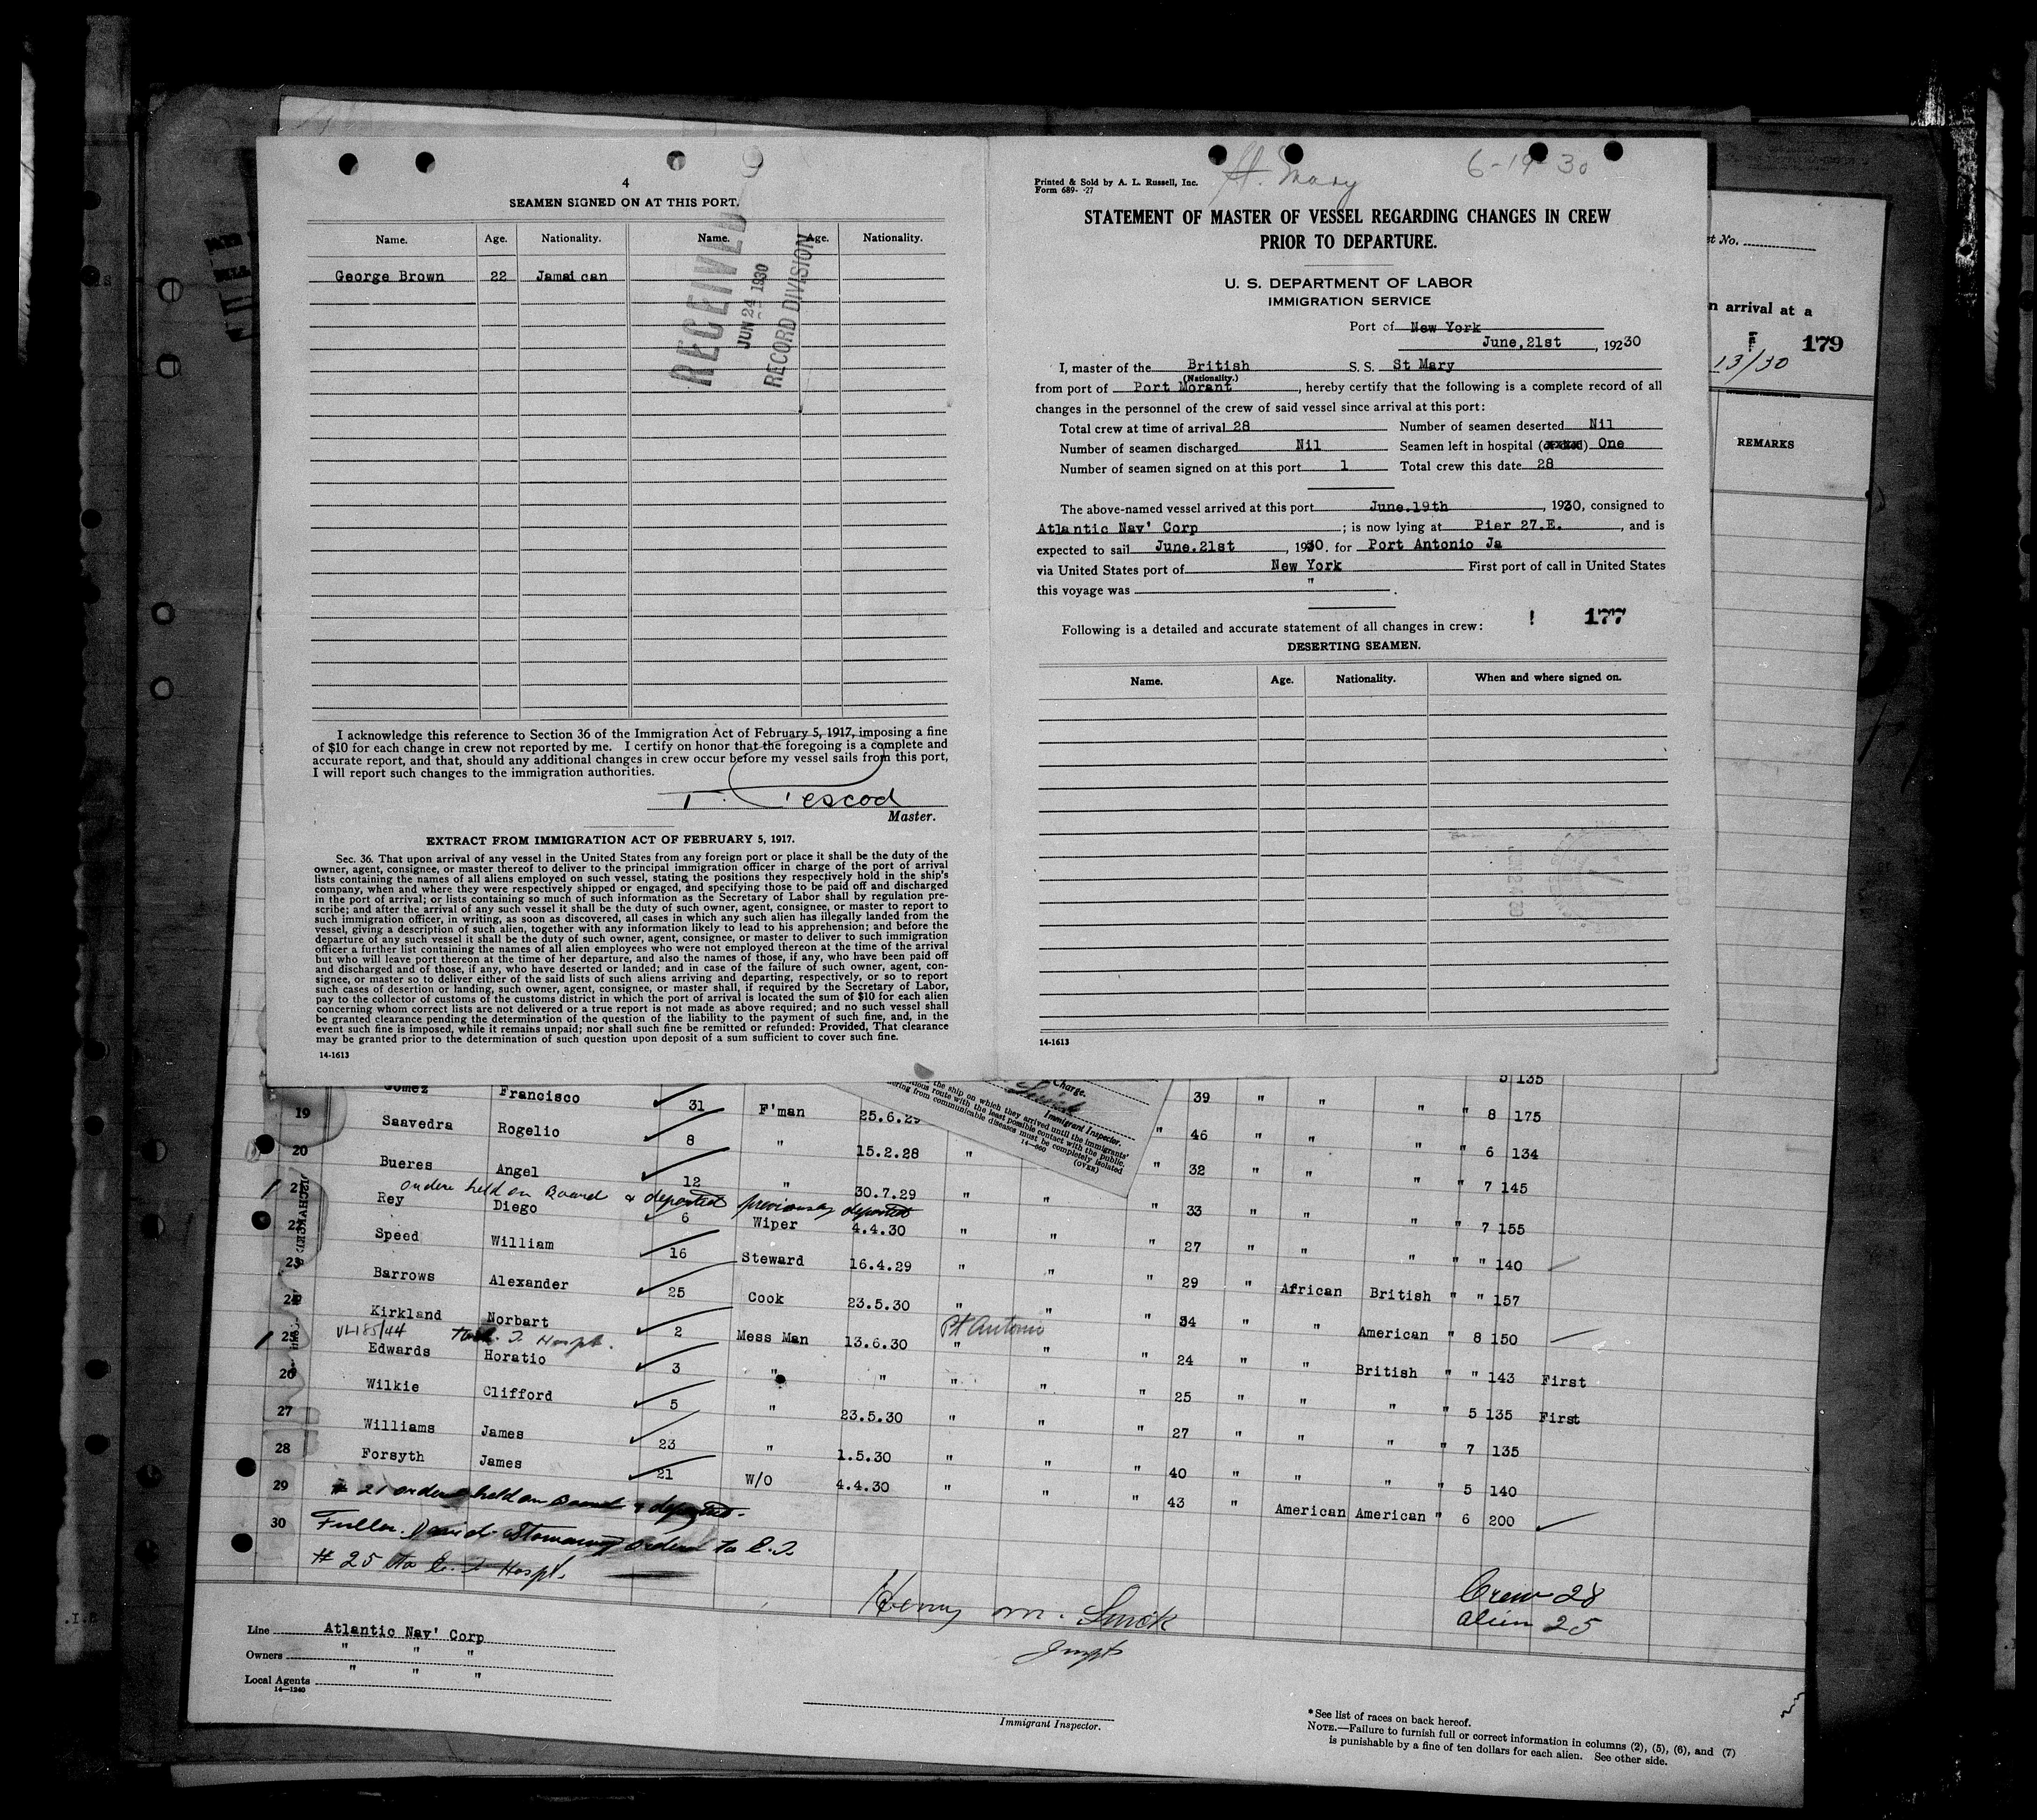 4
SEAMEN SIGNED ON AT THIS PORT.
Name. Age. Nationality. Name. Age. Nationality.
George Brown 22 Jamaican
RECEIVED
JUN 24 1930
RECORD DIVISION
I acknowledge this reference to Section 36 of the Immigration Act of February 5, 1917, imposing a fine
of $10 for each change in crew not reported by me. I certify on honor that the foregoing is a complete and
accurate report, and that, should any additional changes in crew occur before my vessel sails from this port,
I will report such changes to the immigration authorities.
Master.
EXTRACT FROM IMMIGRATION ACT OF FEBRUARY 5, 1917.
Sec. 36. That upon arrival of any vessel in the United States from any foreign port or place it shall be the duty of the
owner, agent, consignee, or master thereof to deliver to the principal immigration officer in charge of the port of arrival
lists containing the names of all aliens employed on such vessel, stating the positions they respectively hold in the ship's
company, when and where they were respectively shipped or engaged, and specifying those to be paid off and discharged
in the port of arrival; or lists containing so much of such information as the Secretary of Labor shall by regulation pre-
scribe; and after the arrival of any such vessel it shall be the duty of such owner, agent, consignee, or master to report to
such immigration officer, in writing, as soon as discovered, all cases in which any such alien has illegally landed from the
vessel, giving a description of such alien, together with any information likely to lead to his apprehension; and before the
departure of any such vessel it shall be the duty of such owner, agent, consignee, or master to deliver to such immigration
officer a further list containing the names of all alien employees who were not employed thereon at the time of the arrival
but who will leave port thereon at the time of her departure, and also the names of those, if any, who have been paid off
and discharged and of those, if any, who have deserted or landed; and in case of the failure of such owner, agent, con-
signee, or master so to deliver either of the said lists of such aliens arriving and departing, respectively, or so to report
such cases of desertion or landing, such owner, agent, consignee, or master shall, if required by the Secretary of Labor,
pay to the collector of customs of the customs district in which the port of arrival is located the sum of $10 for each alien
concerning whom correct lists are not delivered or a true report is not made as above required; and no such vessel shall
be granted clearance pending the determination of the question of the liability to the payment of such fine, and, in the
event such fine is imposed, while it remains unpaid; nor shall such fine be remitted or refunded: Provided, That clearance
may be granted prior to the determination of such question upon deposit of a sum sufficient to cover such fine.
14-1613
St. Mary 6-19-30
Printed & Sold by A. L. Russell, Inc.
Form 689- -27
STATEMENT OF MASTER OF VESSEL REGARDING CHANGES IN CREW
PRIOR TO DEPARTURE.
U. S. DEPARTMENT OF LABOR
IMMIGRATION SERVICE
Port of New York
June.21st , 19230
I, master of the British S. S. St Mary
(Nationality.)
from port of Port Morant , hereby certify that the following is a complete record of all
changes in the personnel of the crew of said vessel since arrival at this port:
Total crew at time of arrival 28 Number of seamen deserted Nil
Number of seamen discharged Nil Seamen left in hospital ( ) One
Number of seamen signed on at this port 1 Total crew this date 28
The above-named vessel arrived at this port June.19th , 1930, consigned to
Atlantic Nav' Corp ; is now lying at Pier 27.E. , and is
expected to sail June.21st , 1930. for Port Antonio Ja
via United States port of New York First port of call in United States
this voyage was "
! 177
Following is a detailed and accurate statement of all changes in crew:
DESERTING SEAMEN.
Name. Age. Nationality. When and where signed on.
14-1613
st No.
n arrival at a
179
13/30
REMARKS
5 135
19 Gomez Francisco 31 F'man 25.6.29 39 " " " " 8 175
20 Saavedra Rogelio 8 " 15.2.28 " " 46 " " " " 6 134
21 Bueres Angel 12 " 30.7.29 " " " 32 " " " " 7 145
ordere held on Board & deported previously deported
22 Rey Diego 6 Wiper 4.4.30 " " " 33 " " " " 7 155
23 Speed William 16 Steward 16.4.29 " " " 27 " " " " " 140
24 Barrows Alexander 25 Cook 23.5.30 " " " 29 " African British " " 157
25 Kirkland Norbart 2 Mess Man 13.6.30 Pt Antonio " " 34 " " American " 8 150
Hospt.
26 Edwards Horatio 3 " " " " " 24 " " British " " 143 First
27 Wilkie Clifford 5 " 23.5.30 " " " 25 " " " " 5 135 First
28 Williams James 23 " 1.5.30 " " " 27 " " " " 7 135
29 Forsyth James 21 W/O 4.4.30 " " " 40 " " " " 5 140
43 " American American " 6 200
# 21 ordere held on Board & deported.
30 Fuller. David Stowaway Ordere to E.I.
# 25 to E. I Hospt.
Henry M. Smick
Inspt
Crew 28
alien 25
Line Atlantic Nav' Corp
Owners " " "
Local Agents " " "
14-1240
Immigrant Inspector.
* See list of races on back hereof.
NOTE.—Failure to furnish full or correct information in columns (2), (5), (6), and (7)
is punishable by a fine of ten dollars for each alien. See other side.
Charge.
Immigrant Inspector.
the ship on which they arrived until the immigrants'
tious route with the least possible contact with the public.
ering from communicable diseases must be completely isolated
14-660 (OVER)